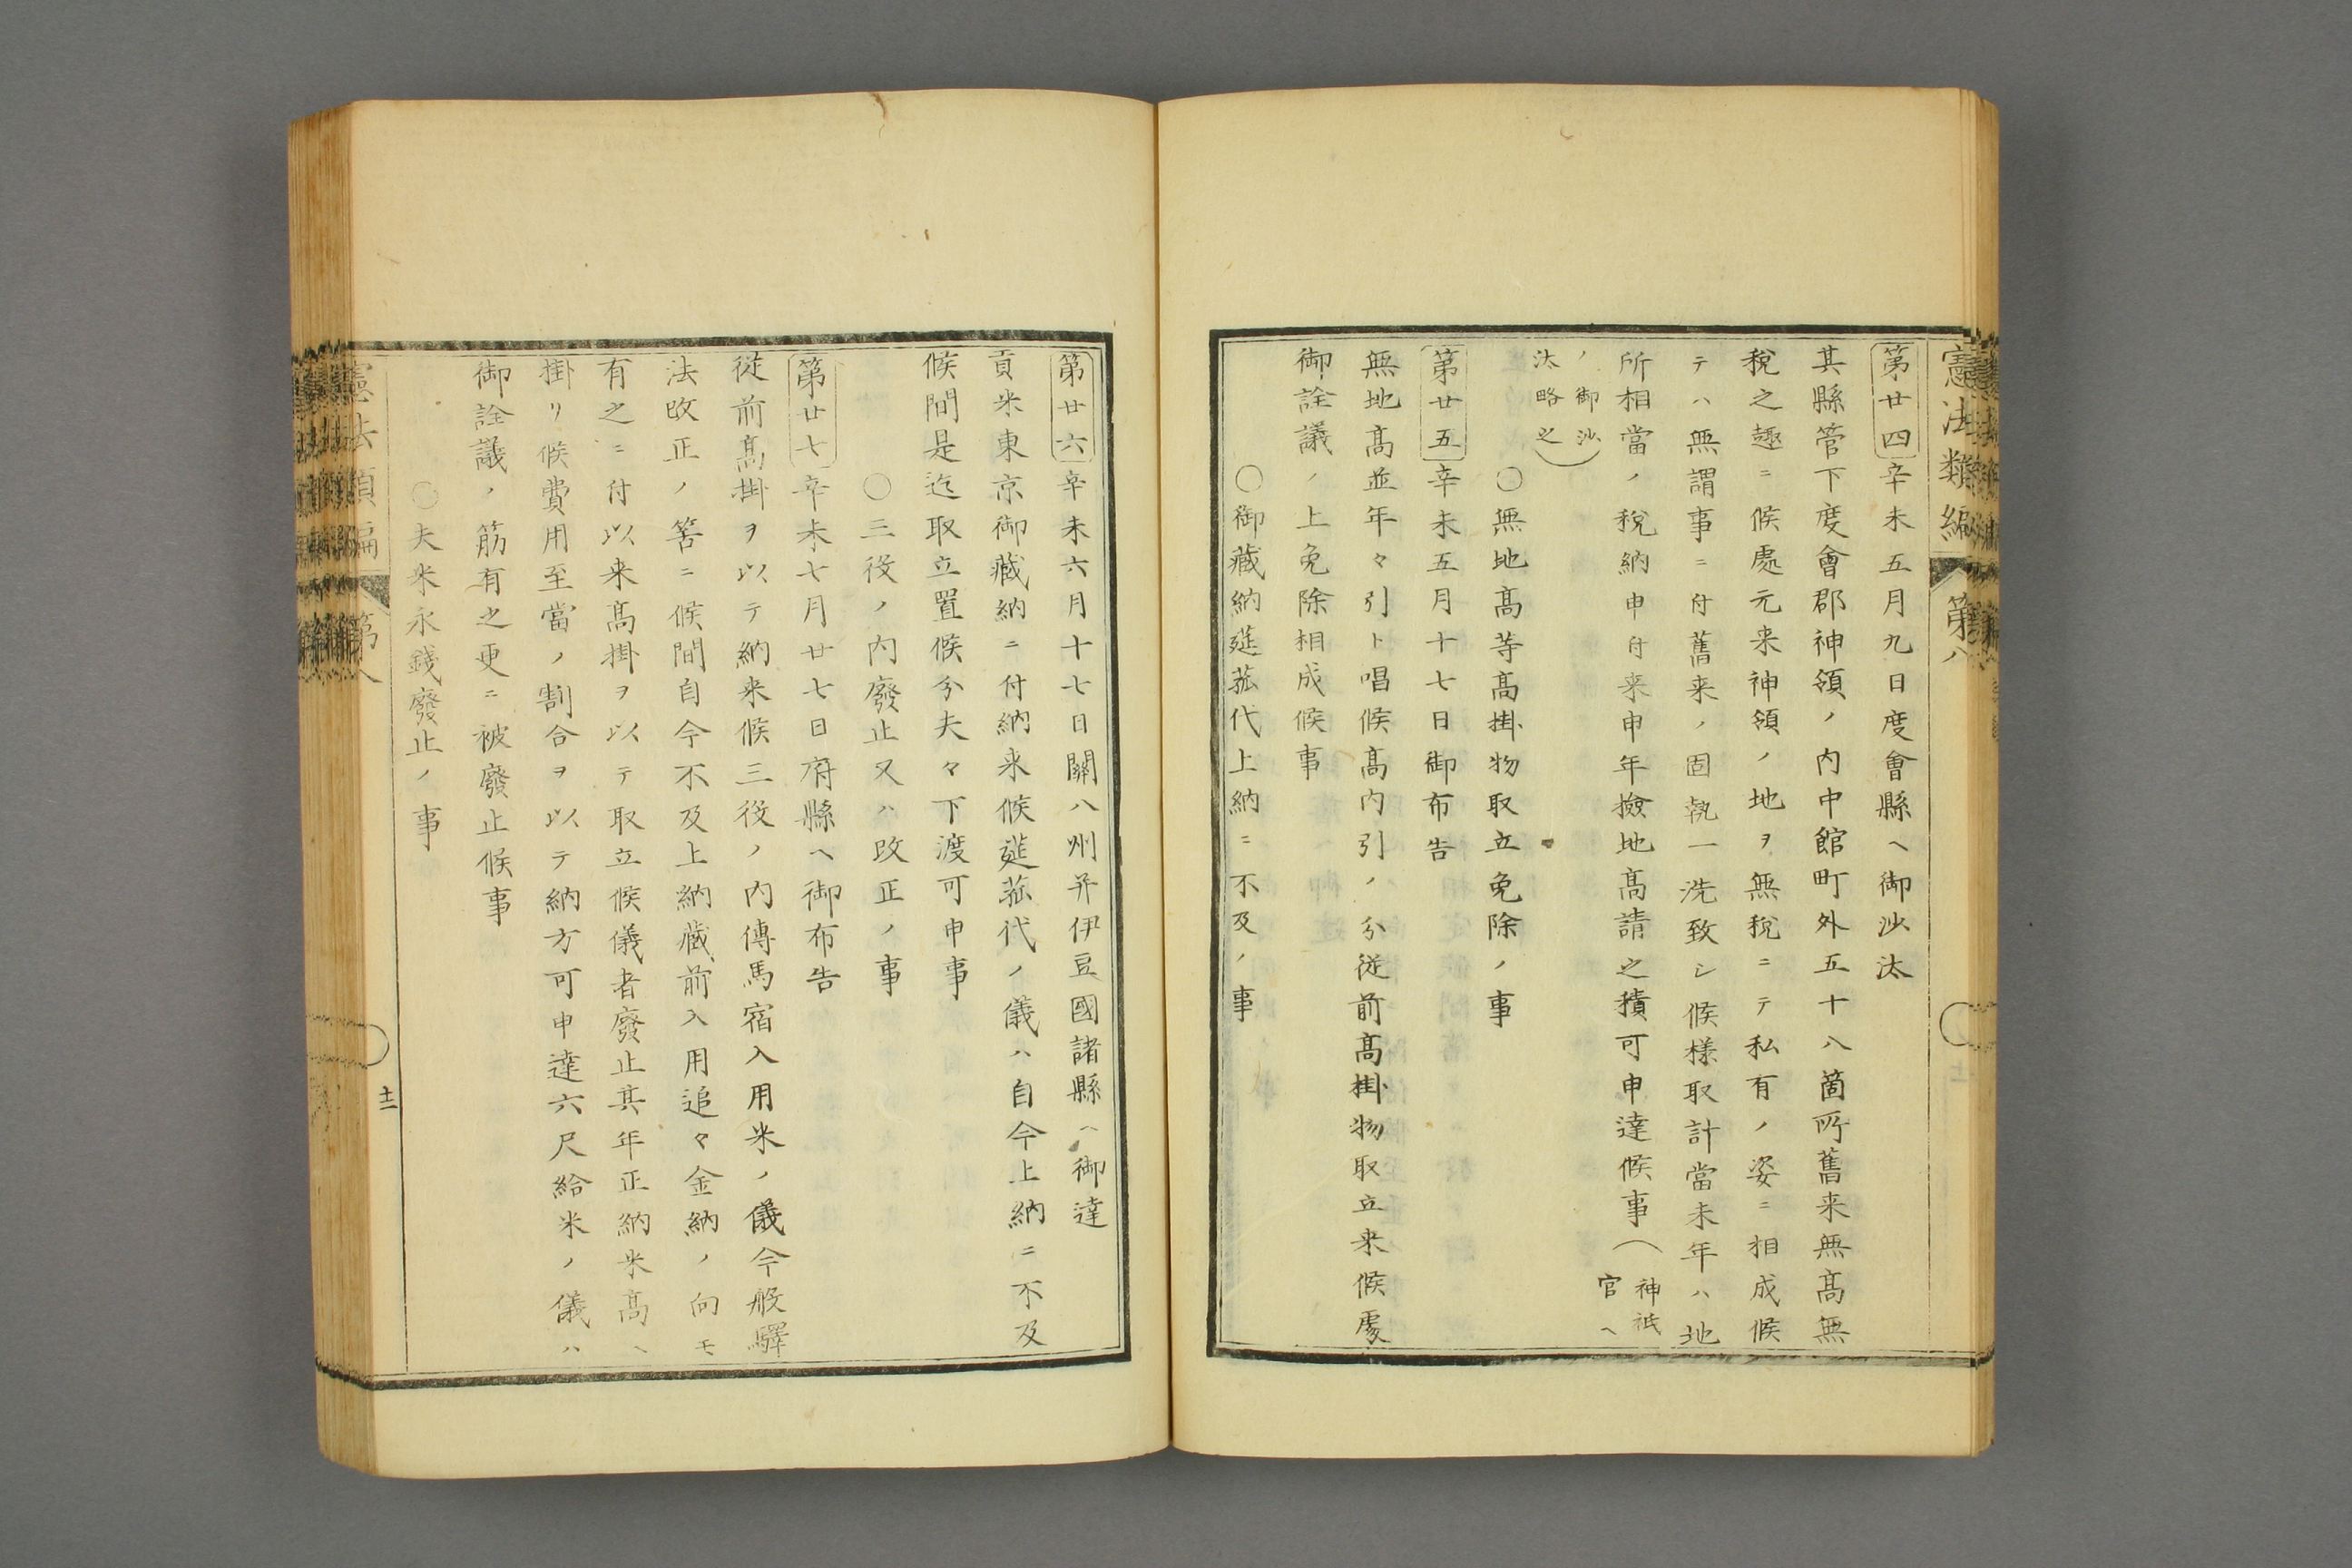 憲法類編
第八
第廿四辛未五月九日度會縣ヘ御沙汰
其縣管下度會郡神領ノ内中館町外五十八箇所舊来無髙無
税之趣ニ候處元来神領ノ地ヲ無税ニテ私有ノ姿ニ相成候
テハ無謂事ニ付舊来ノ固執一洗致シ候様取計當未年ハ地
所相當ノ税納申付来申年撿地髙請之積可申達候事（神祇官ヘ
ノ御沙汰略之）
○無地髙等髙掛物取立免除ノ事
第廿五辛未五月十七日御布告
無地髙並年々引ト唱候髙内引ノ分従前髙掛物取立来候處
御詮議ノ上免除相成候事
○御藏納莚菰代上納ニ不及ノ事
第廿六辛未六月十七日關八州并伊豆國諸縣ヘ御達
貢米東京御藏納ニ付納来候莚菰代ノ儀ハ自今上納ニ不及
候間是迄取立置候分夫々下渡可申事
○三役ノ内廢止又ハ改正ノ事
第廿七辛未七月廿七日府縣ヘ御布告
従前髙掛ヲ以テ納来候三役ノ内傳馬宿入用米ノ儀今般驛
法改正ノ筈ニ候間自今不及上納藏前入用追々金納ノ向モ
有之ニ付以来髙掛ヲ以テ取立候儀者廢止其年正納米髙ヘ
掛リ候費用至當ノ割合ヲ以テ納方可申達六尺給米ノ儀ハ
御詮議ノ筋有之更ニ被廢止候事
○夫米永錢廢止ノ事
憲法類編
第八
十二